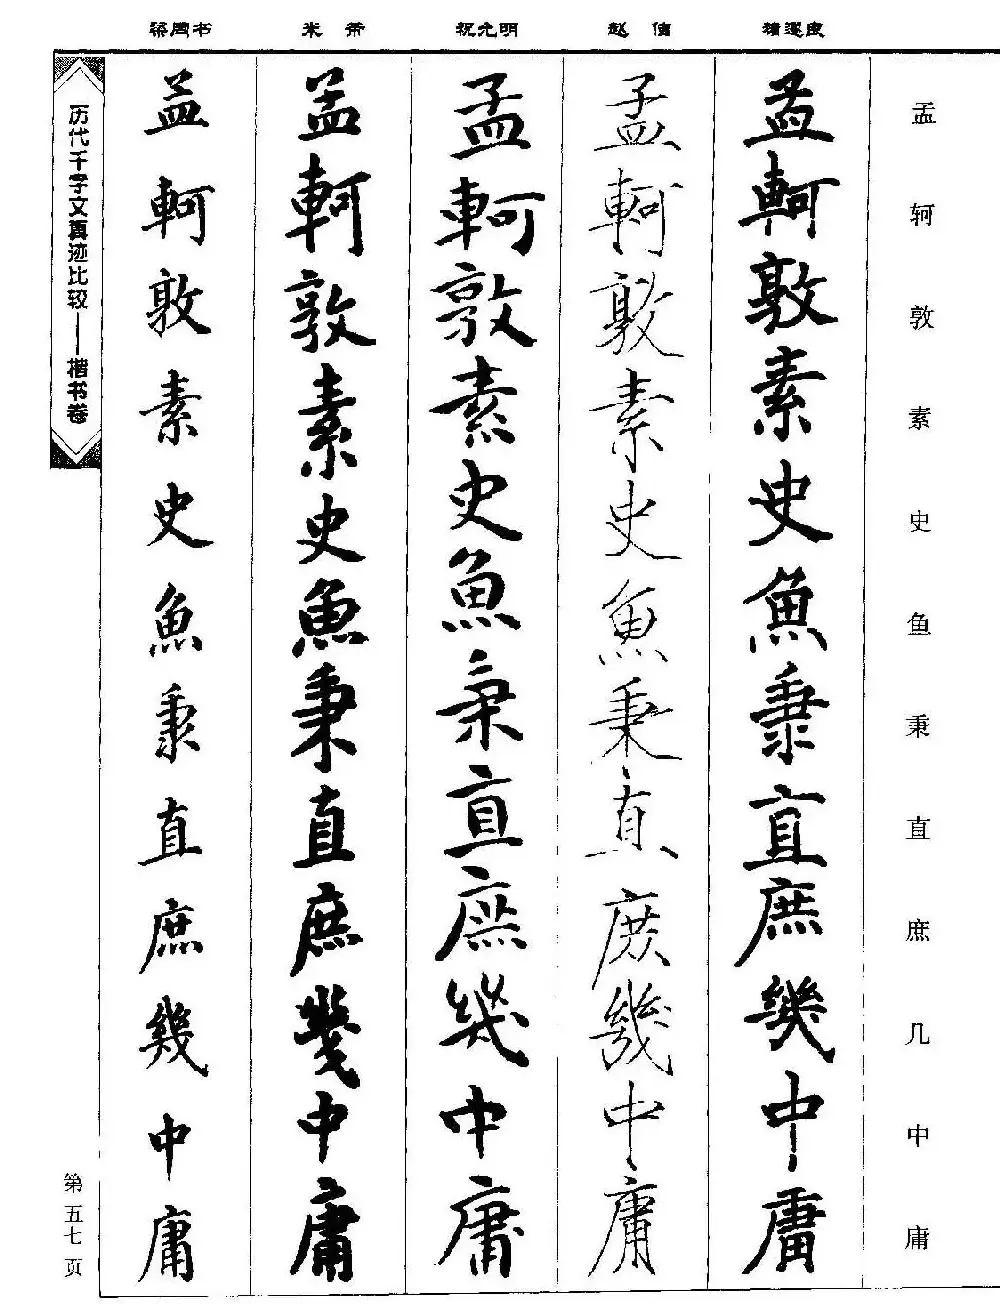 梁同书 米芾 祝允明 赵佶 褚遂良
孟轲敦素史鱼秉直庶几中庸
孟軻敦素史魚秉直庶幾中庸
孟軻敦素史魚秉直庶幾中庸
孟軻敦素史魚秉直庶幾中庸
孟軻敦素史魚秉直庶幾中庸
孟軻敦素史魚秉直庶幾中庸
历代千字文真迹比较——楷书卷
第五七页